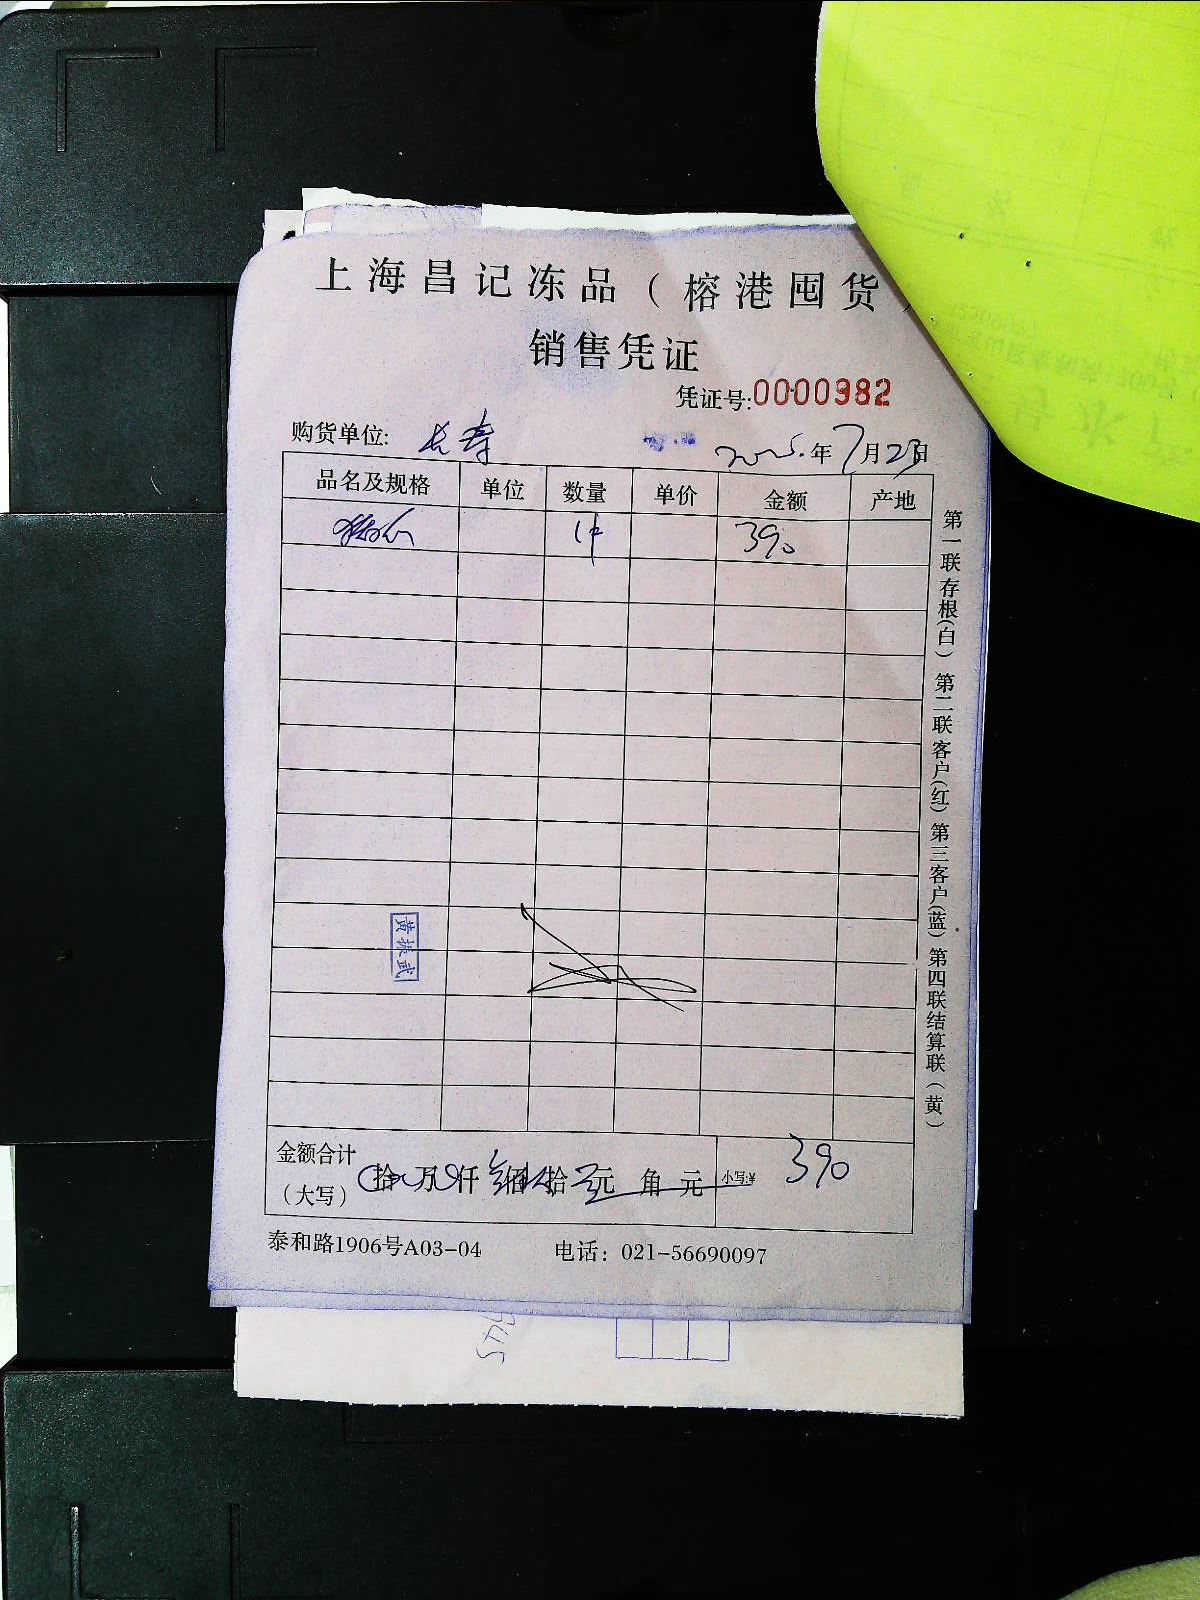 上海昌记冻品（榕港囤货）
销售凭证
凭证号:0000982
购货单位: 长寿 2025年7月23日
品名及规格 单位 数量 单价 金额 产地
1件 390
黄振武
金额合计
（大写） 拾 万 仟 佰 拾 元 角 元 小写:¥ 390
泰和路1906号A03-04 电话：021-56690097
第一联存根(白) 第二联客户(红) 第三客户(蓝) 第四联结算联（黄）